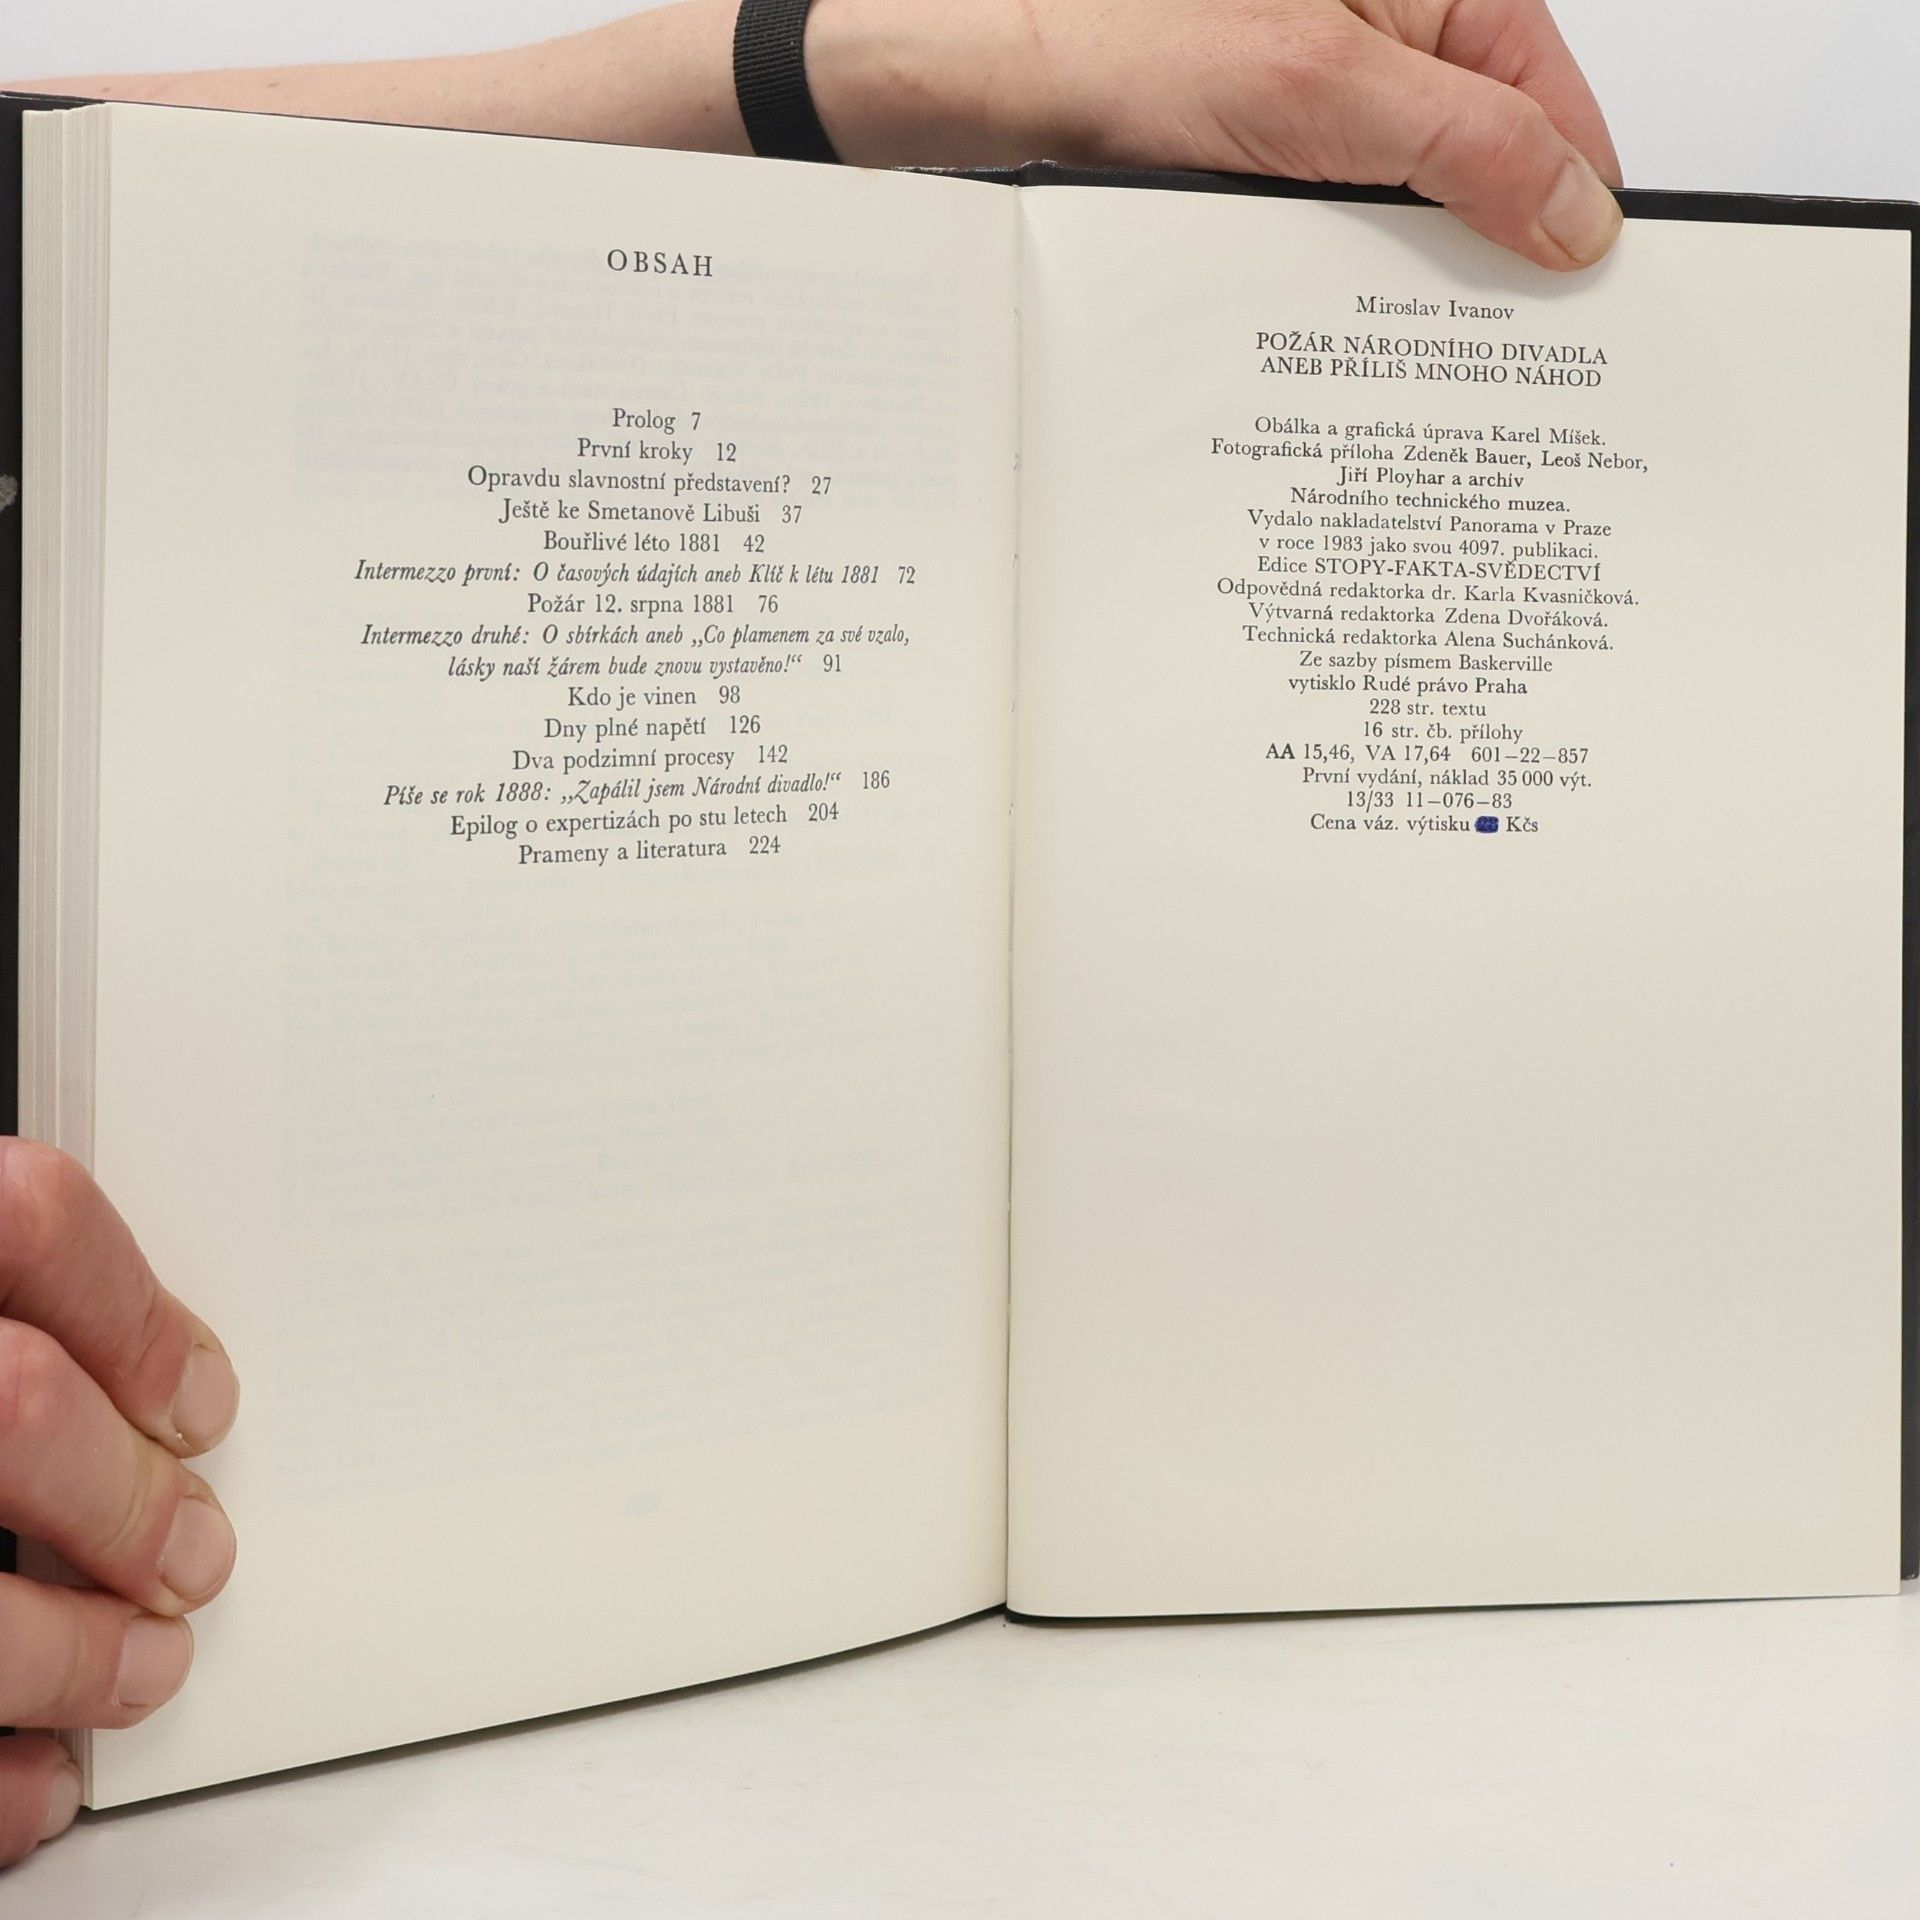 OBSAH
Prolog 7
První kroky 12
Opravdu slavnostní představení? 27
Ještě ke Smetanově Libuši 37
Bouřlivé léto 1881 42
Intermezzo první: O časových údajích aneb Klíč k létu 1881 72
Požár 12. srpna 1881 76
Intermezzo druhé: O sbírkách aneb „Co plamenem za své vzalo,
lásky naší žárem bude znovu vystavěno!“ 91
Kdo je vinen 98
Dny plné napětí 126
Dva podzimní procesy 142
Píše se rok 1888: „Zapálil jsem Národní divadlo!“ 186
Epilog o expertizách po stu letech 204
Prameny a literatura 224
Miroslav Ivanov
POŽÁR NÁRODNÍHO DIVADLA
ANEB PŘÍLIŠ MNOHO NÁHOD
Obálka a grafická úprava Karel Míšek.
Fotografická příloha Zdeněk Bauer, Leoš Nebor,
Jiří Ployhar a archív
Národního technického muzea.
Vydalo nakladatelství Panorama v Praze
v roce 1983 jako svou 4097. publikaci.
Edice STOPY-FAKTA-SVĚDECTVÍ
Odpovědná redaktorka dr. Karla Kvasničková.
Výtvarná redaktorka Zdena Dvořáková.
Technická redaktorka Alena Suchánková.
Ze sazby písmem Baskerville
vytisklo Rudé právo Praha
228 str. textu
16 str. čb. přílohy
AA 15,46, VA 17,64 601–22–857
První vydání, náklad 35 000 výt.
13/33 11–076–83
Cena váz. výtisku Kčs